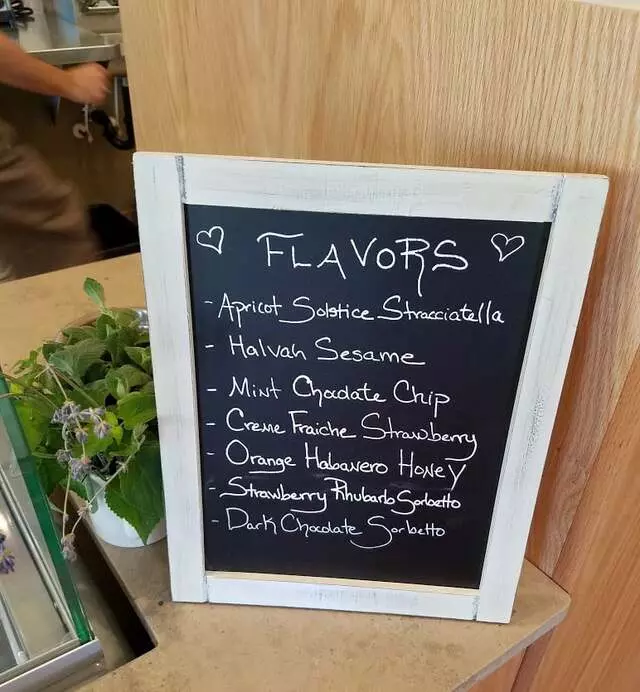 FLAVORS
- Apricot Solstice Stracciatella
- Halvah Sesame
- Mint Chocolate Chip
- Creme Fraiche Strawberry
- Orange Habanero Honey
- Strawberry Rhubarb Sorbetto
- Dark Chocolate Sorbetto